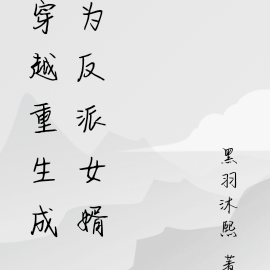 穿越重生成
为反派女婿
黑羽沐熙 著